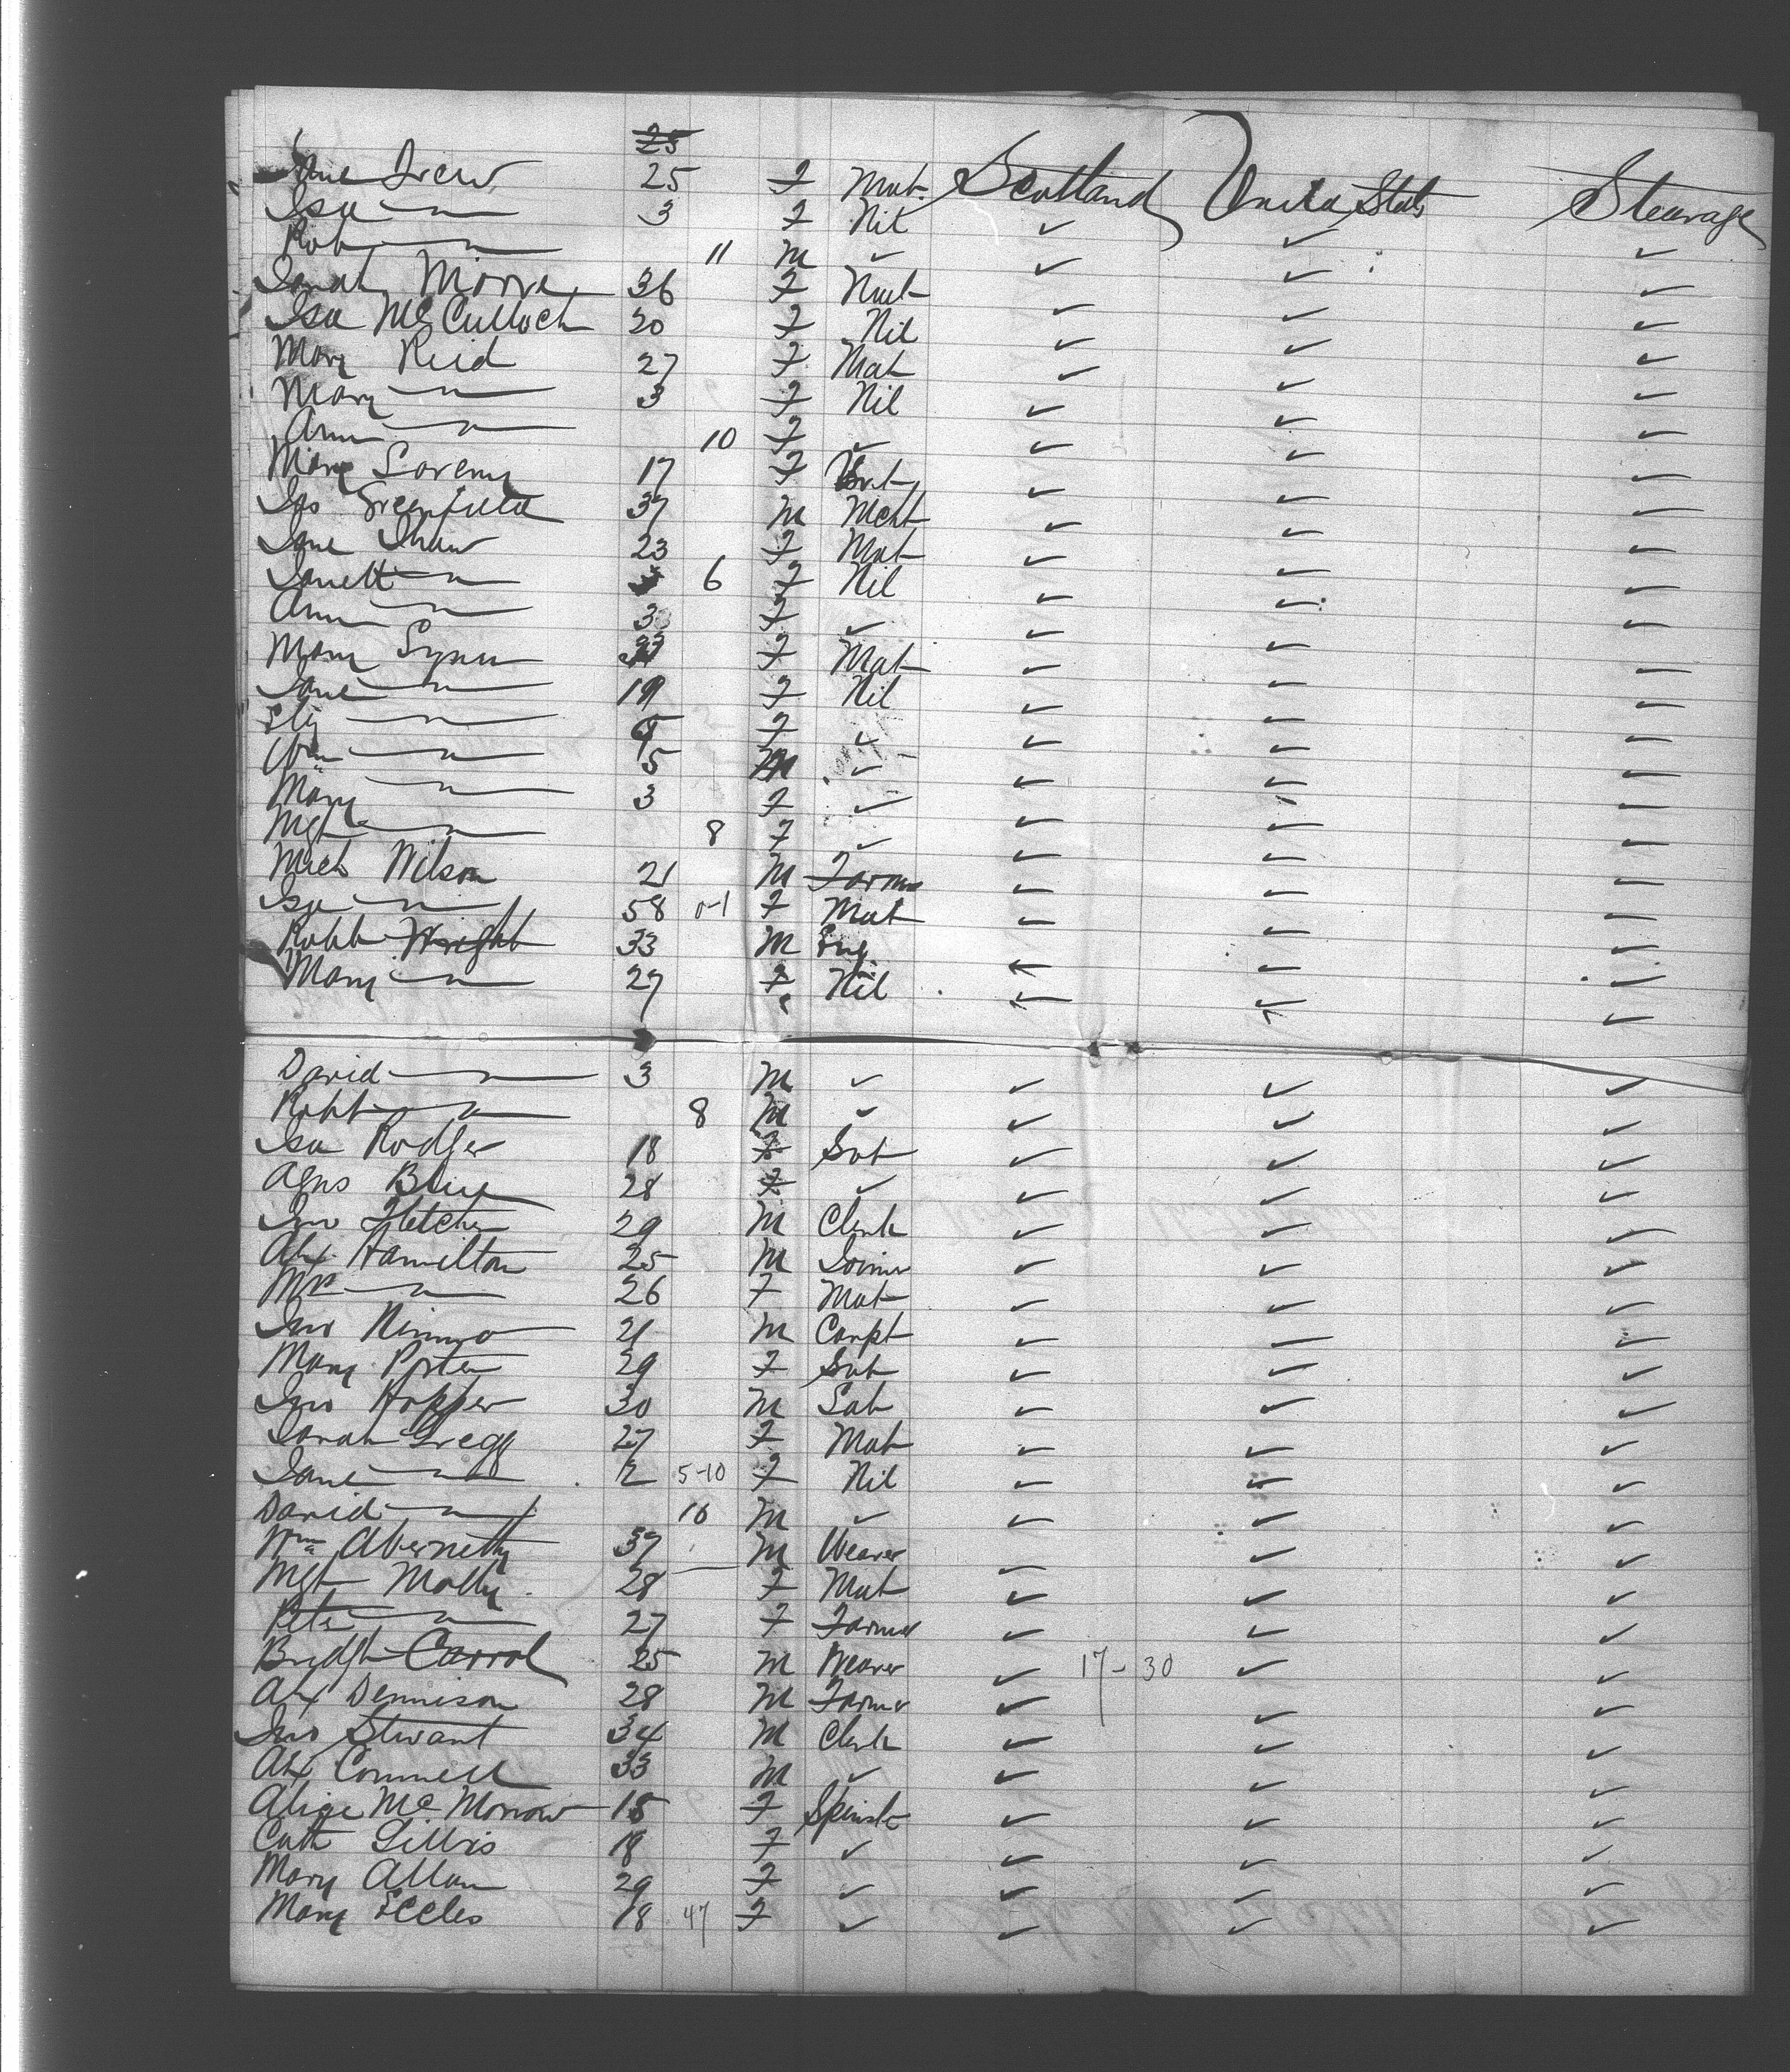 25
Jane Drew 25 F Mat. Scotland United Stats Steavage
Isa —"— 3 F Nil ✓ ✓ ✓
Rob —"— 11 M ✓ ✓ ✓ ✓
Sarah Moore 36 F Mat ✓ ✓ ✓
Isa McCulloch 20 F Nil ✓ ✓ ✓
Mary Reid 27 F Mat ✓ ✓ ✓
Mary —"— 3 F Nil ✓ ✓ ✓
Ann —"— 10 F ✓ ✓ ✓ ✓
Mary 17 F ✓ ✓ ✓
Jas Greenfield 37 M Mcht ✓ ✓ ✓
Jane Shaw 23 F Mat ✓ ✓ ✓
Janett —"— 6 F Nil ✓ ✓ ✓
Ann —"— 3 F ✓ ✓ ✓ ✓
Mary F Mat ✓ ✓ ✓
Jane —"— 19 F Nil ✓ ✓ ✓
Eliz —"— F ✓ ✓ ✓ ✓
Wm —"— 5 M ✓ ✓ ✓ ✓
Mary —"— 3 F ✓ ✓ ✓ ✓
Mgt —"— 8 F ✓ ✓ ✓ ✓
Mich Wilson 21 M Farmr ✓ ✓ ✓
Isa —"— 58 0-1 F Mat ✓ ✓ ✓
Robt Wright 33 M Eng. ✓ ✓ ✓
Mary —"— 27 F Nil ✓ ✓ ✓
David —"— 3 M ✓ ✓ ✓ ✓
Robt —"— 8 M ✓ ✓ ✓ ✓
Isa Rodger 18 F Svt ✓ ✓ ✓
Agns 28 F ✓ ✓ ✓ ✓
Jno Fletcher 29 M Clerk ✓ ✓ ✓
Alx Hamilton 25 M Joiner ✓ ✓ ✓
Mrs —"— 26 F Mat ✓ ✓ ✓
Jno Nimmo 21 M Carpt ✓ ✓ ✓
Mary Porter 29 F Svt ✓ ✓ ✓
Jno Hopper 30 M Lab ✓ ✓ ✓
Sarah Gregg 27 F Mat ✓ ✓ ✓
Jane —"— 2 5-10 F Nil ✓ ✓ ✓
David —"— 10 M ✓ ✓ ✓ ✓
Wm Abernethy 37 M Weaver ✓ ✓ ✓
Mgt Molly 28 F Mat ✓ ✓ ✓
Petr —"— 27 F Farmer ✓ ✓ ✓
Bridgt Carrol 25 M Weaver ✓ 17-30 ✓ ✓
Alx Dennison 28 M Farmer ✓ ✓ ✓
Jno Stewart 34 M Clerk ✓ ✓ ✓
Alx Connell 33 M ✓ ✓ ✓ ✓
Alice McMorrow 18 F Spinst ✓ ✓ ✓
Cath Gillvis 18 F ✓ ✓ ✓ ✓
Mary Allan 29 F ✓ ✓ ✓ ✓
Mary Eccles 18 47 F ✓ ✓ ✓ ✓